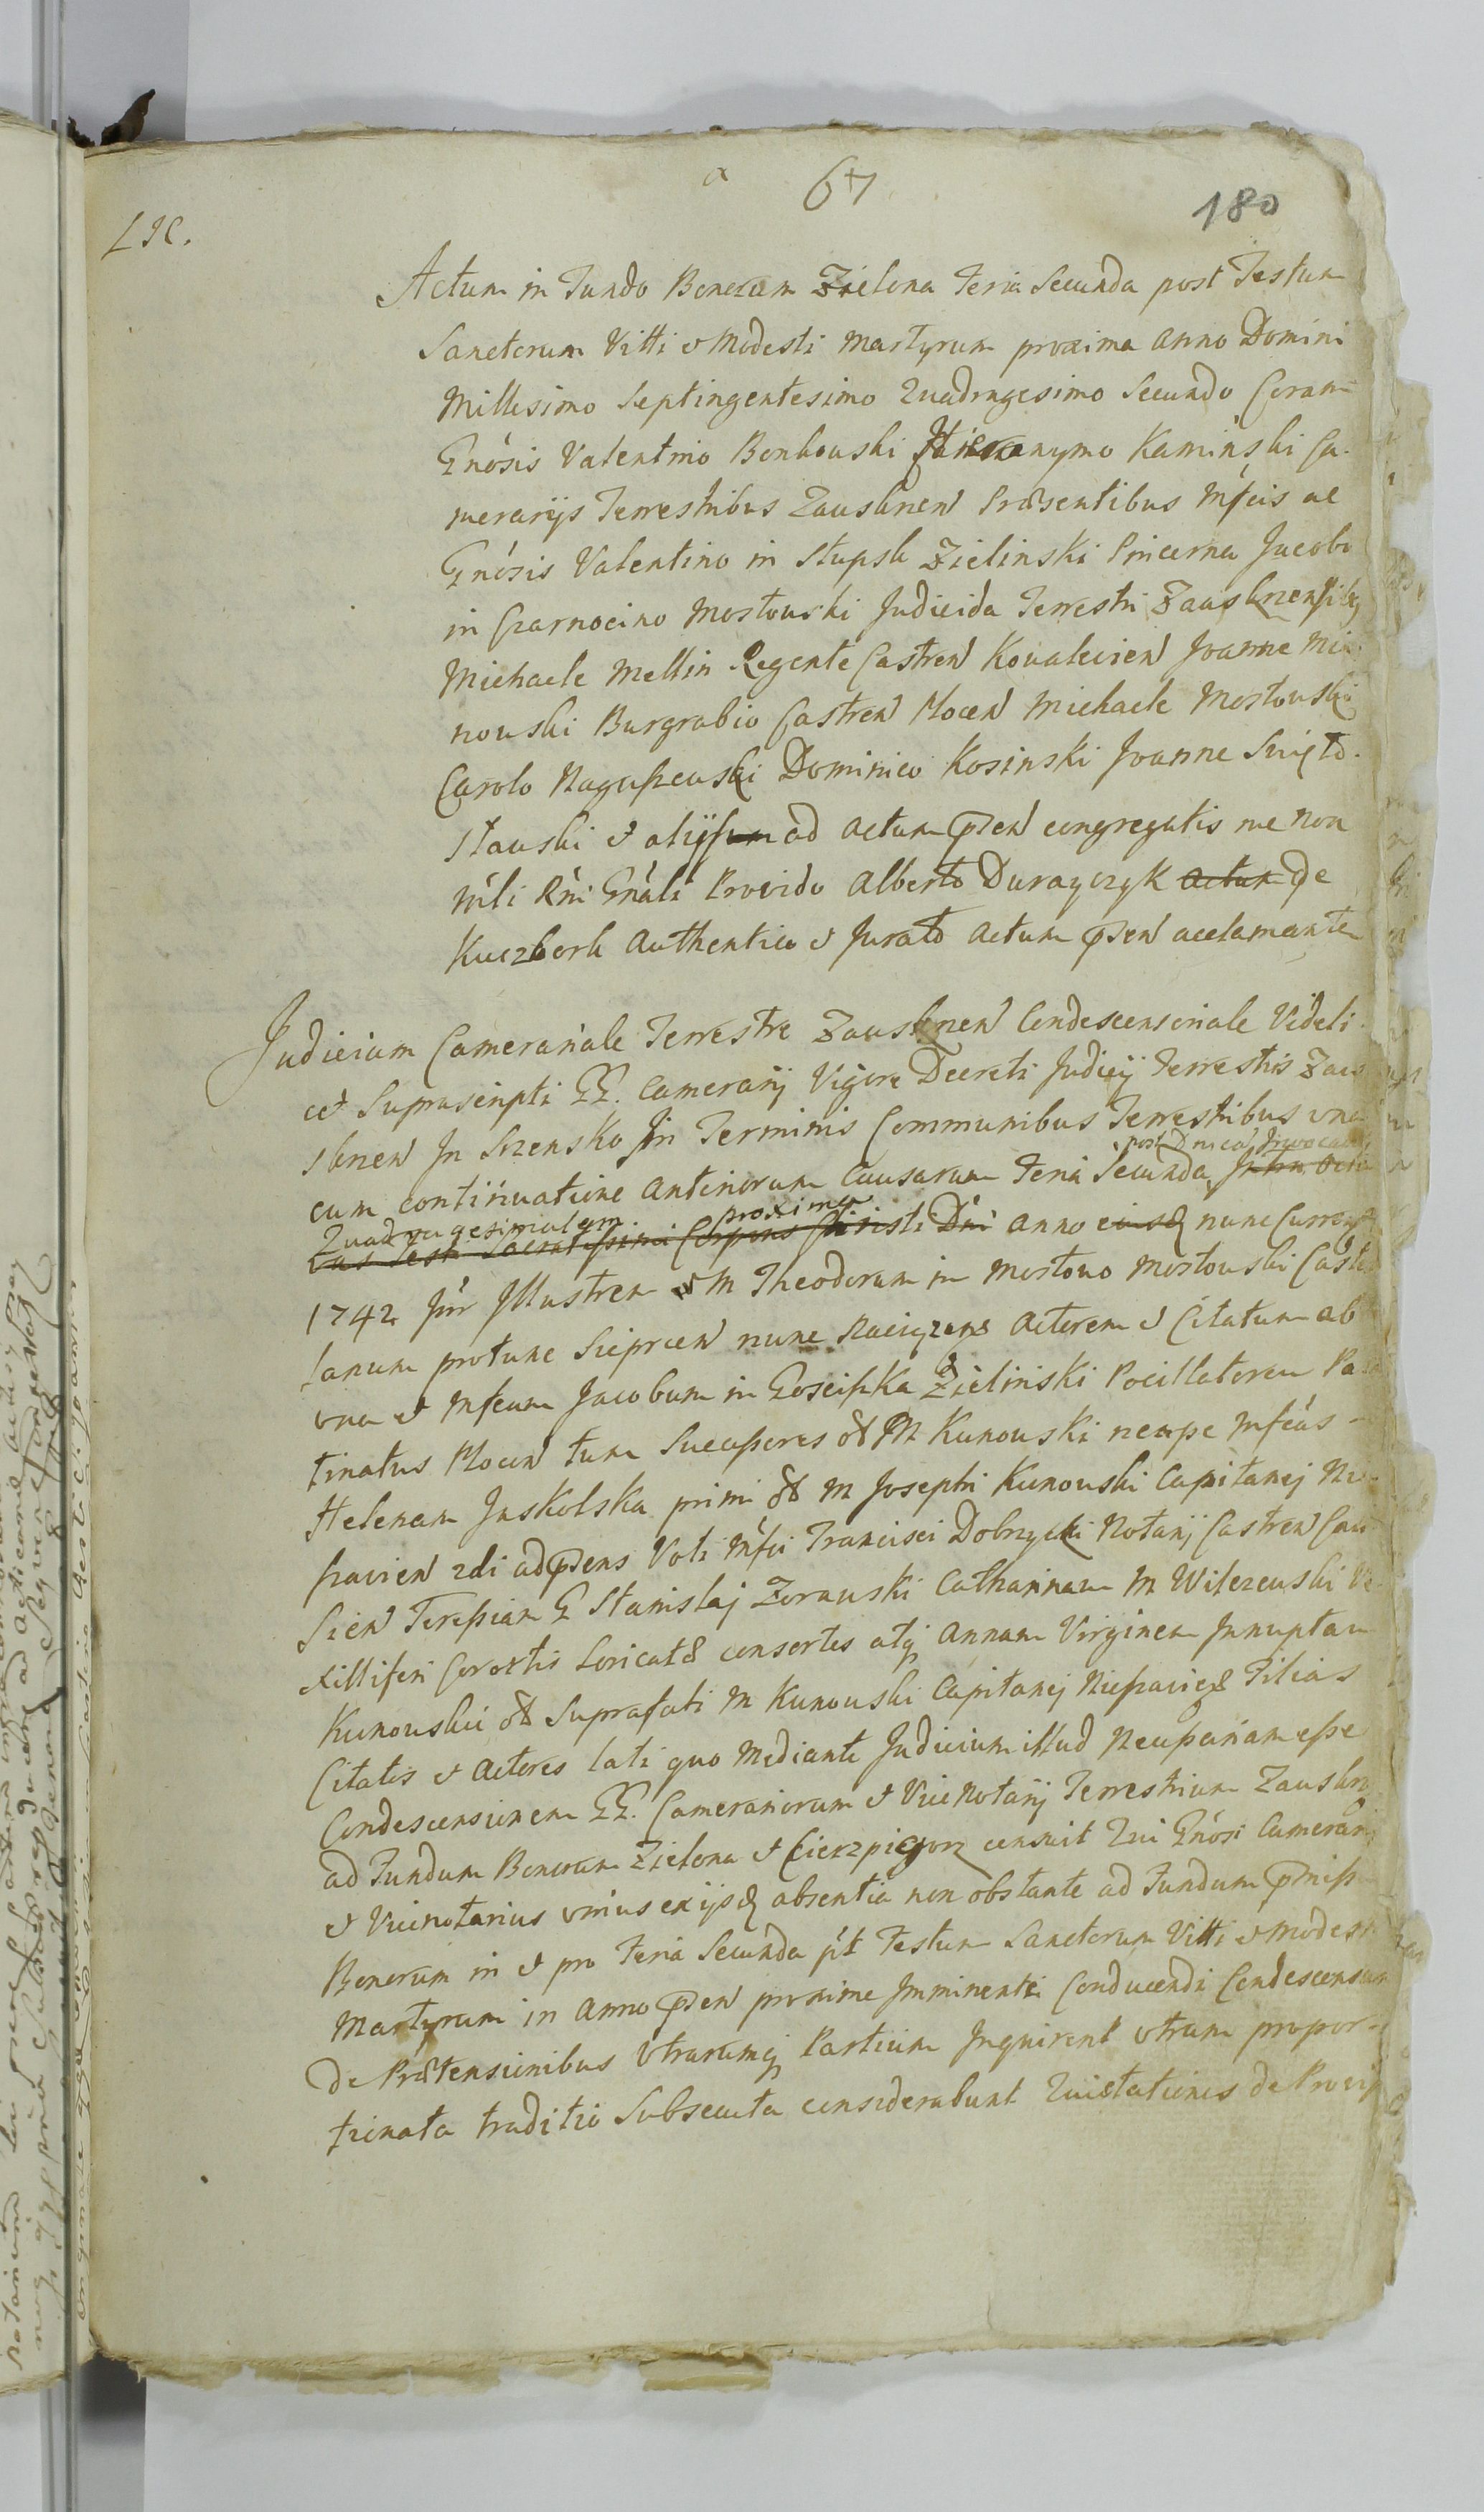 67
180
LIC.
Actum in Fundo Bonorum Zielona Feria Secunda post Festum
Sanctorum Vitti et Modesti Martyrum proxima Anno Domini
Millesimo Septingentesimo Quadragesimo Secundo Coram
Gnosis Valentino Bonkouski Hieronymo Kaminski Ca-
merarijs Terrestribus Zauskrnen Præsentibus Mfcis ac
Gnosis Valentino in Stupsk Zielinski Pincerna Jacobo
in Czarnocino Mostouski Judicida Terrestri Zauskrzensibq
Michaele Mellin Regente Castren Kovalevien Joanne Mi
nouski Burgrabio Castren Plocen Michaele Mostouski
Carolo Naguszeuski Dominico Kosinski Joanne Swięto-
stauski et alijs ad Actum psen congregatis nec non
Mli Rni Gnali Provido Alberto Durayczyk Actum de
Kuczbork Authentico et Jurato Actum psen acclamante
Judicium Camerariale Terrestre Zauskrnen Condescensoriale Videli-
cet Suprascripti GG. Camerarij Vigore Decreti Judicij Terrestris Zau
skrnen In Srzensko In Terminis Communibus Terrestribus una
post Dnicam Invocavit
cum continuatione Anteriorum Causarum Feria Secunda
Quadragesimalem proxima
Festi Sacratissimi Corporis Christi Dni Anno eiusd nunc Current
1742 Inr Illustrem et M Theodorum in Mostowo Mostouski Caste
lanum protunc Sieprcen nunc Raciązens Actorem et Citatum ab
una et Mfcum Jacobum in Gosciszka Zielinski Pocillatorem Pa
tinatus Plocen tum Sucessores M Kunouski nempe Mfcas
Helenam Jaskolska primi M Josephi Kunouski Capitanej Nie
szavien 2di ad psens Voti Mfci Francisci Dobrzycki Notarij Castren
sien Teresiam G Stanislaj Zorauski Catharinam M Wilczeuski Ve
xilliferi Corortis Loricatæ consortes atq Annam Virginem Innuptam
Kunouskie Suprafati M Kunouski Capitanej Nieszavien Filias
Citatis et Actores lati quo Mediante Judicium illud Necessariam esse
Condescensionem GG. Camerariorum et Vice Notarij Terrestrium Zauskrn
ad Fundum Bonorum Zielona et Cierzpigorz censuit Qui Gnosi Camerarij
et Vicenotarius unius ex ijsd absentia non obstante ad Fundum pmiss
Bonorum in et pro Feria Secunda pt Festum Sanctorum Vitti et Modesti
Martyrum in Anno psen proxime Imminenti Conducendi Condescensum
de Prætensionibus Utrarumq Partium Inquirent utrum propor-
tionata traditio Subsecuta considerabunt Quietationes de Provis